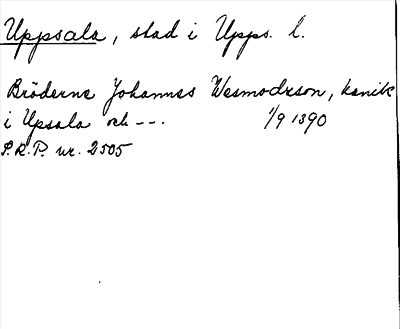 Uppsala, stad i Upps. l.
Bröderne Johannes Wesmodrson, kanik
i Upsala och ---. 1/9 1390
S.R.P. nr. 2505